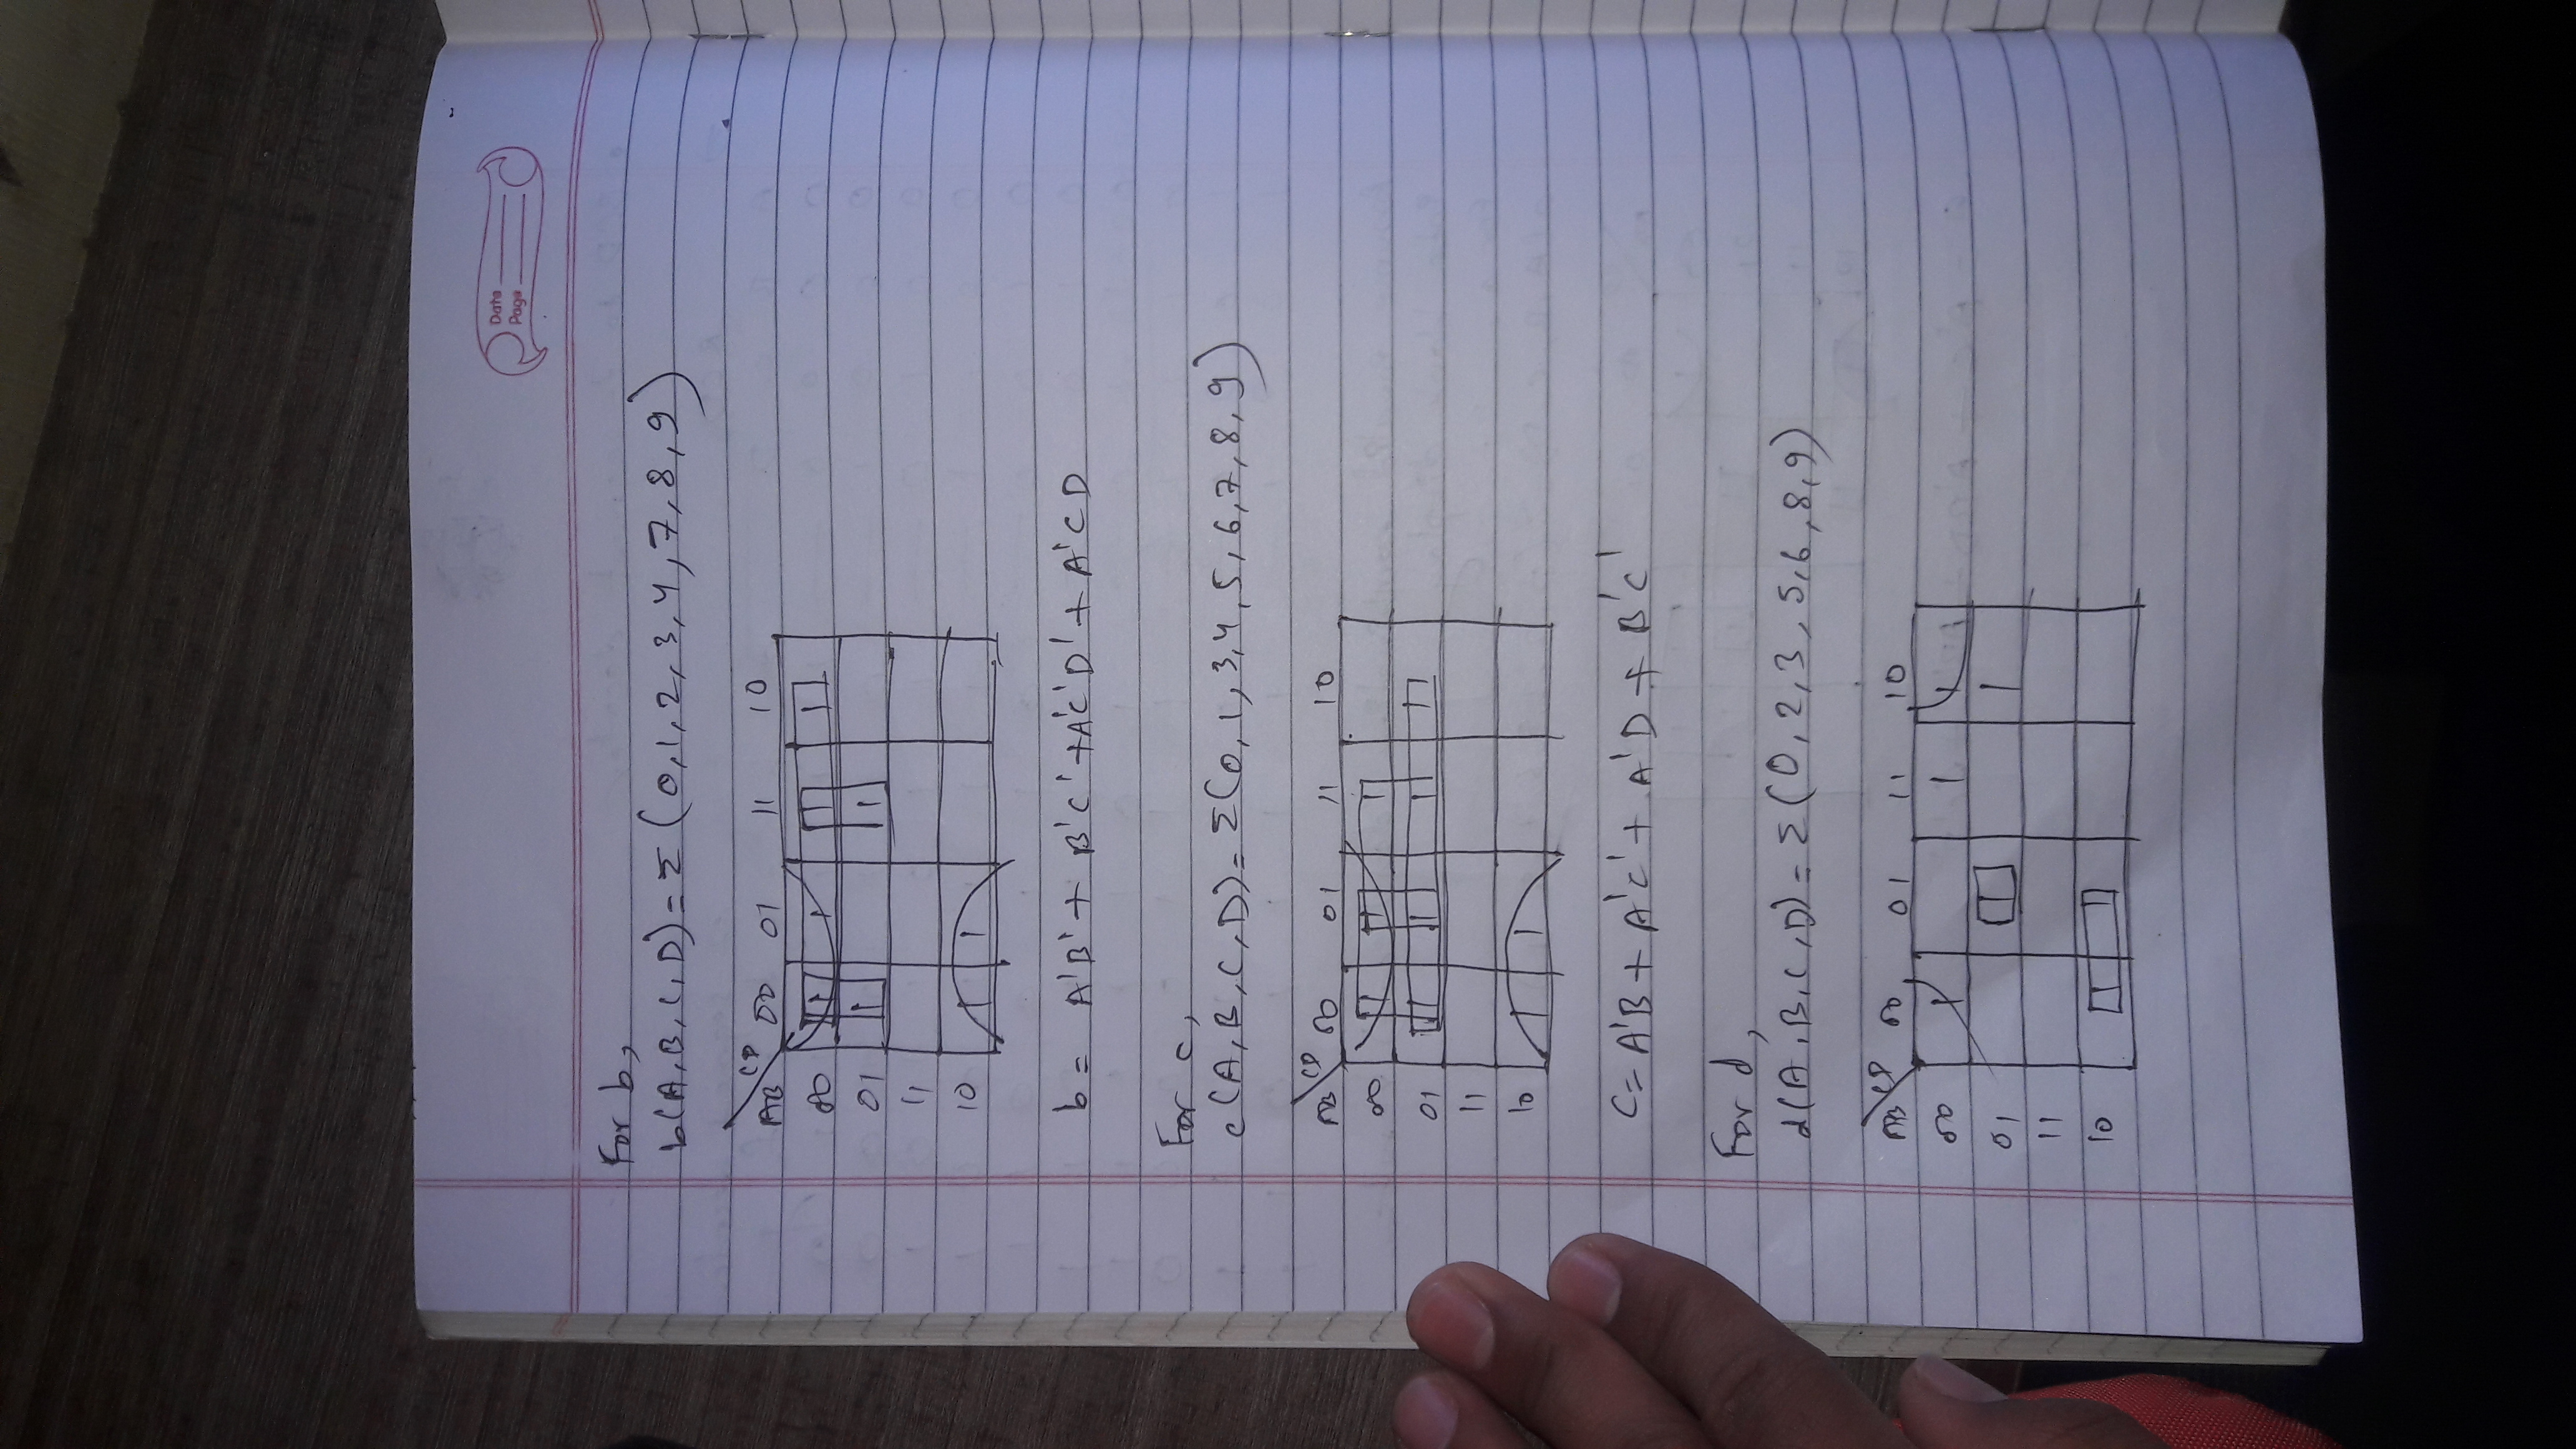 Date
Page
For b,
b(A,B,C,D) = Σ (0,1,2,3,4,7,8,9)
CD
AB 00 01 11 10
00 1 1 1 1
01 1 1
11
10 1 1
b = A'B' + B'C' + A'C'D' + A'CD
For c,
c(A,B,C,D) = Σ(0,1,3,4,5,6,7,8,9)
CD
AB 00 01 11 10
00 1 1 1
01 1 1 1 1
11
10 1 1
C = A'B + A'C' + A'D + B'C'
For d,
d(A,B,C,D) = Σ(0,2,3,5,6,8,9)
CD
AB 00 01 11 10
00 1 1 1
01 1 1
11
10 1 1